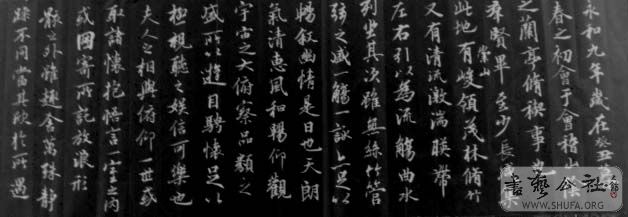 永和九年歲在癸丑
春之初會于會稽山
之蘭亭脩禊事也
羣賢畢至少長集
此地有崇山峻領茂林脩竹
又有清流激湍暎帶
左右引以為流觴曲水
列坐其次雖無絲竹管
弦之盛一觴一詠亦足以
暢敘幽情是日也天朗
氣清惠風和暢仰觀
宇宙之大俯察品類之
盛所以遊目騁懷足以
極視聽之娛信可樂也
夫人之相與俯仰一世或
取諸懷抱悟言一室之內
或因寄所託放浪形
骸之外雖趣舍萬殊靜
躁不同當其欣於所遇
書藝公社
WWW.SHUFA.ORG